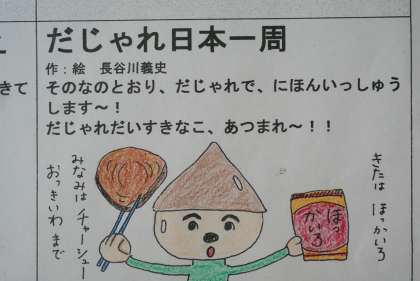 だじゃれ日本一周
作：絵　長谷川義史
そのなのとおり、だじゃれで、にほんいっしゅう
します～！
だじゃれだいすきなこ、あつまれ～！！
きたは ほっかいろ
ほっ
かいろ
みなみは チャーシュー
おっきいわ まで
きて